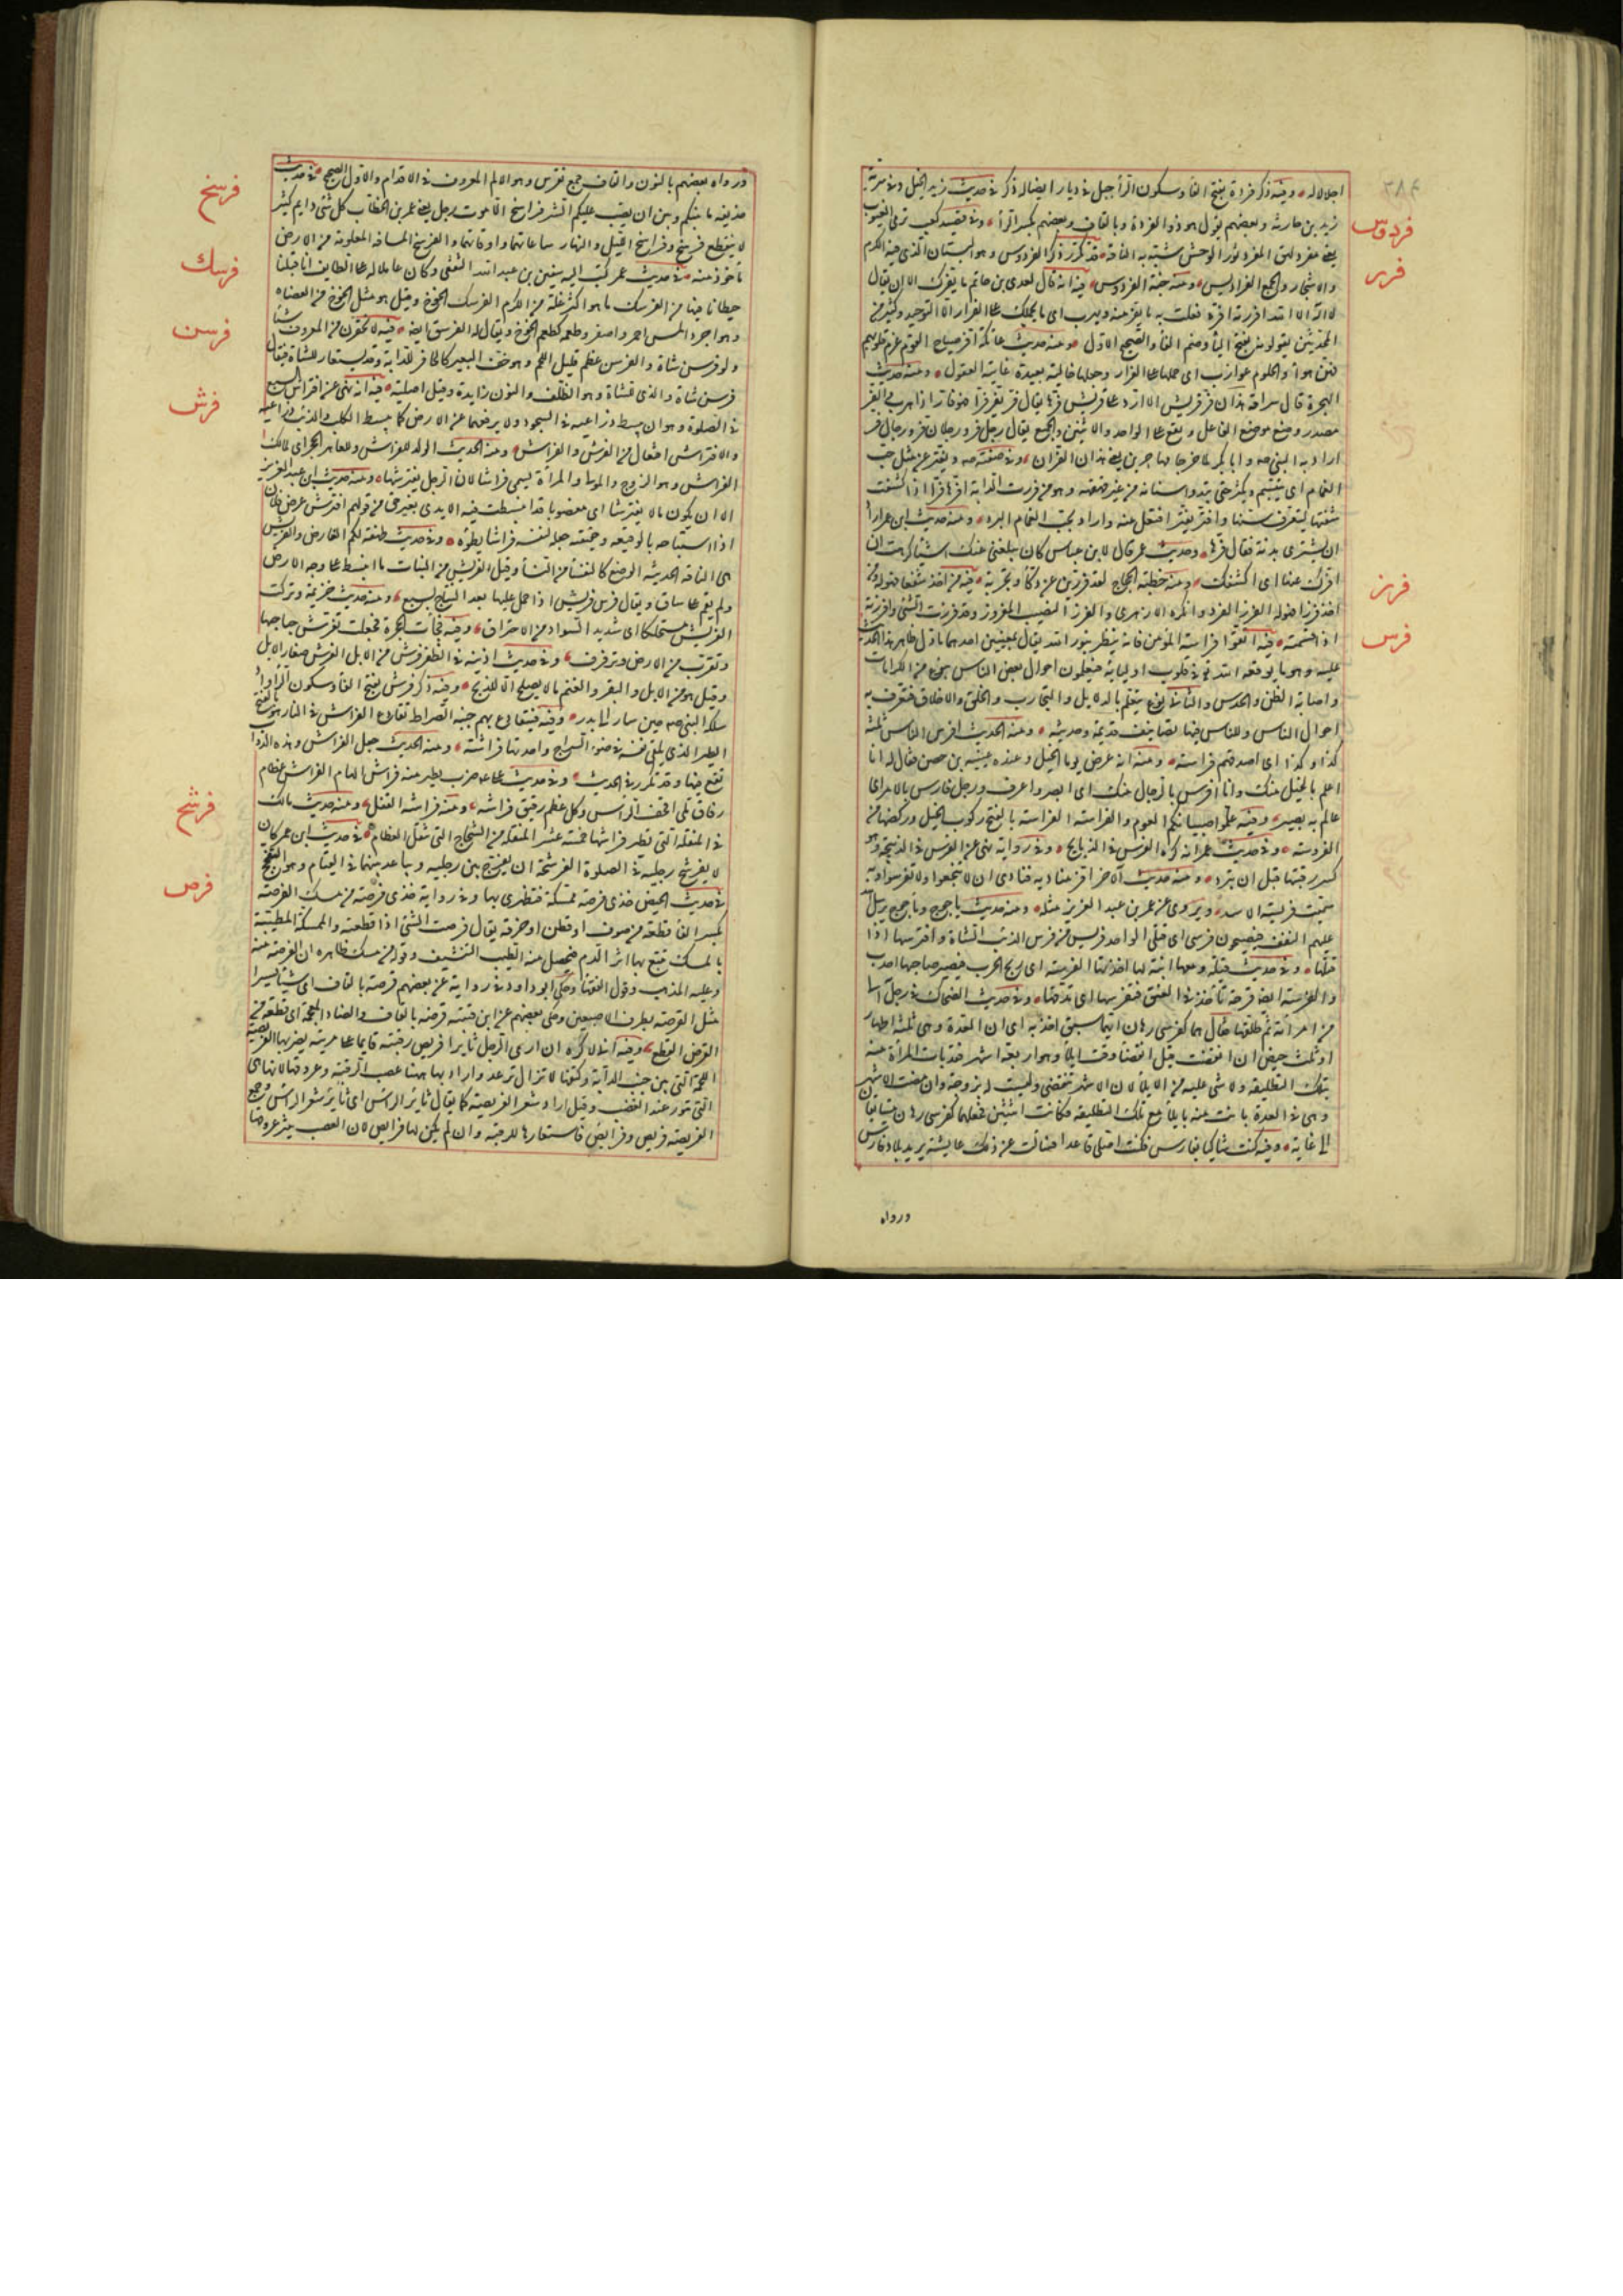 ٢٨٤
اجلالاله وفيه ذكر فردة بفتح الفاء وسكون الراء جبل في ديار ايضا له ذكر في حديث زيد الخيل وفي سرية
زيد بن حارثة وبعضهم يقول هو ذو القردة وبالقاف وبعضهم بكسر الراء وفي قصيد كعب ترمى الغيوب
بعيني مفرد لهق المفرد ثور الوحش شبه به الناقة قد تكرر ذكر الفردوس وهو البستان الذي فيه الكرم
والاشجار والجمع الفراديس ومنه جنة الفردوس فيه انه قال لعدي بن حاتم ما يفرك الا ان يقال
لا اله الا الله افررته افره فعلت به ما يفر منه ويهرب اي ما يحملك على الفرار الا التوحيد وكثير من
المحدثين يقولونه بفتح الياء وضم الفاء والصحيح الاول ومنه حديث عاتكة افر صياح القوم عزم قلوبهم
فهن هواء والحلوم عوازب اي حملها على الفرار وجعلها خالية بعيدة غائبة العقول ومنه حديث
الهجرة قال سراقة هذان فر قريش الا ارد على قريش فرها يقال فر يفر فرا فهو فار اذا هرب والفر
مصدر وضع موضع الفاعل ويقع على الواحد والاثنين والجمع يقال رجل فر ورجلان فر ورجال فر
اراد به النبي صه وابا بكر لما خرجا مهاجرين يعني هذان الفران وفي صفته صه ويفتر عن مثل حب
الغمام اي يتبسم ويكشر حتى تبدو اسنانه من غير قهقهة وهو من فررت الدابة افرها فرا اذا كشفت
شفتها لتعرف سنها وافتر يفتر افتعل منه واراد بحب الغمام البرد ومنه حديث ابن عمر اراد
ان يشتري بدنة فقال فرها وحديث عمر قال لابن عباس كان يبلغني عنك اشياء كرهت ان
افرك عنها اي اكشفك ومنه خطبة الحجاج لقد فررت عن ذكاء وتجربة فيه من اخذ شفعا فهو له ومن
اخذ فرزا فهو له الفرز الفرد وانكره الازهري والفرز النصيب المفروز وقد فرزت الشئ وافرزته
اذا قسمته فيه اتقوا فراسة المؤمن فانه ينظر بنور الله يقال بمعنيين احدهما ما دل ظاهر هذا الحديث
عليه وهو ما يوقعه الله تع في قلوب اوليائه فيعلمون احوال بعض الناس بنوع من الكرامات
واصابة الظن والحدس والثاني نوع يتعلم بالدلايل والتجارب والخلق والاخلاق فتعرف به
احوال الناس وللناس فيها تصانيف قديمة وحديثه ومنه الحديث افرس الناس ثلثه
كذا وكذا اي اصدقهم فراسة ومنه انه عرض يوما الخيل وعنده عيينه بن حصن فقال له انا
اعلم بالخيل منك وانا افرس بالرجال منك اي ابصر واعرف ورجل فارس بالامر اي
عالم به بصير وفيه علموا صبيانكم العوم والفراسة الفراسة بالفتح ركوب الخيل وركضها من
الفروسة وفي حديث عمر انه كره الفرس في الذبايح وفي رواية نهى عن الفرس في الذبيحة وهو
كسر رقبتها قبل ان تبرد ومنه حديث الاخر امر مناديه فنادى ان لا تنخعوا ولا تفرسوا وبه
سميت فريسة الاسد ويروى عن عمر بن عبد العزيز مثله ومنه حديث ياجوج وماجوج يرسل الله
عليهم النغف فيصبحون فرسى اي قتلى الواحد فريس من فرس الذئب الشاة وافترسها اذا
قتلها وفي حديث قيلة ومعها ابنة لها اخذتها الفرسة اي ريح الحدب فيصير صاحبها احدب
والفرسة ايضا قرحة تأخذ في العنق فتفرسها اي تدقها وفي حديث الضحاك في رجل آلى
من امرأته ثم طلقها فقال هما كفرسي رهان ايهما سبق اخذ به اي ان العدة وهي ثلثة اطهار
او ثلث حيض ان انقضت قبل انقضاء وقت ايلائه وهو اربعة اشهر فقد بانت المرأة منه
بتلك التطليقة ولا شئ عليه من الايلاء لان الاشهر تنقضي وليست له بزوجة وان مضت الاشهر
وهي في العدة بانت منه بايلاء مع تلك التطليقة فكانت اثنتين فجعلهما كفرسي رهان يتسابقان
الى غاية وفيه كنت شاكيا بفارس فكنت اصلي قاعدا فسألت عن ذلك عايشة يريد بلاد فارس
فردوس
فرر
فرز
فرس
ورواه
ورواه بعضهم بالنون والقاف جمع نقرس وهو الالم المعروف في الاقدام والاول الصحيح في حديث
حذيفه ما بينكم وبين ان يصب عليكم الشر فراسخ الا موت رجل يعني عمر بن الخطاب كل شئ دايم كثير
لا ينقطع فرسخ وفراسخ الليل والنهار ساعاتهما واوقاتهما والفرسخ المسافة المعلومة من الارض
مأخوذ منه في حديث عمر كتب اليه سفين بن عبد الله الثقفي وكان عاملا له على الطايف ان قبلنا
حيطانا فيها من الفرسك ما هو اكثر غلة من الكرم الفرسك الخوخ وقيل هو مثل الخوخ من العضاه
وهو اجرد املس احمر واصفر وطعمه كطعم الخوخ ويقال له الفرسق ايضا فيه لا تحقرن من المعروف شيئا
ولو فرسن شاة والفرسن عظم قليل اللحم وهو خف البعير كالحافر للدابة وقد يستعار للشاة فيقال
فرسن شاة والذي للشاة وهو الظلف والنون زايدة وقيل اصلية فيه انه نهى عن افتراش السبع
في الصلوة وهو ان يبسط ذراعيه في السجود ولا يرفعهما عن الارض كما يبسط الكلب والذئب ذراعيه
والافتراش افتعال من الفرش والفراش ومنه الحديث الولد للفراش وللعاهر الحجر اي لمالك
الفراش وهو الزوج والمولى والمرأة يسمى فراشا لان الرجل يفترشها ومنه حديث ابن عبد العزيز
الا ان يكون مالا مفترشا اي مغصوبا قد انبسطت فيه الايدي بغير حق من قولهم افترش عرض فلان
اذا استباحه بالوقيعة وحقيقته جعله لنفسه فراشا يطؤه وفي حديث طهفة لكم العارض والفريش
هي الناقة الحديثة الوضع كالنفساء من النساء وقيل الفريش من النبات ما انبسط على وجه الارض
ولم يقم على ساق ويقال فرس فريش اذا حمل عليها بعد النتاج بسبع ومنه حديث خزيمة وتركت
الفريش مستحلكا اي شديد السواد من الاحتراق وفيه فجاءت الحمرة فجعلت تفرش جناحها
وتقرب من الارض وترفرف وفي حديث اذينه في الظفر فرش من الابل الفرش صغار الابل
وقيل هو من الابل والبقر والغنم ما لا يصلح الا للذبح وفيه ذكر فرش بفتح الفاء وسكون الراء واد
سلكه النبي صه حين سار الى بدر وفيه فيتقادع بهم جنبة الصراط تقادع الفراش في النار هو بالفتح
الطير الذي يلقي نفسه في ضوء السراج واحدتها فراشة ومنه الحديث جعل الفراش وهذه الدواب
تقع فيها وقد تكرر في الحديث وفي حديث علي ضرب يطير منه فراش الهام الفراش عظام
رقاق تلي القحف الرأس وكل عظم رقيق فراشه ومنه فراشة القفل ومنه حديث مالك
في المنقلة التي تطير فراشها خمسة عشر المنقلة من الشجاج التي تنقل العظام في حديث ابن عمر كان
لا يفرشخ رجليه في الصلوة الفرشخة ان يفرج بين رجليه ويباعد بينهما في القيام وهو التفحج
في حديث الحيض خذي فرصة ممسكة فتطهري بها وفي رواية خذي فرصة من مسك الفرصة
بكسر الفاء قطعة من صوف او قطن او خرقة يقال فرصت الشئ اذا قطعته والممسكة المطيبة
بالمسك تتبع بها اثر الدم فيحصل منه الطيب التنشيف وقوله من مسك ظاهره ان الفرصة منه
وعليه المذهب وقول الفقهاء وحكى ابو داود في رواية عن بعضهم قرصة بالقاف اي شيئا يسيرا
مثل القرصة بطرف الاصبعين وحكى بعضهم عن ابن قتيبة قرضة بالقاف والضاد المعجمة اي قطعة من
القرض القطع وفيه اني لاكره ان ارى الرجل ثايرا فريص رقبته قايما على مريته يضربها الفريصة
اللحمة التي بين جنب الدابة وكتفها لا تزال ترعد واراد بها ههنا عصب الرقبة وعروقها لانها هي
التي تثور عند الغضب وقيل اراد شعر الفريصة كما يقال ثاير الرأس اي ثاير شعر الرأس وجمع
الفريصة فريص وفرايص فاستعارها للرقبة وان لم يكن لها فرايص لان الغضب يثير عروقها
فرسخ
فرسك
فرسن
فرش
فرشخ
فرص